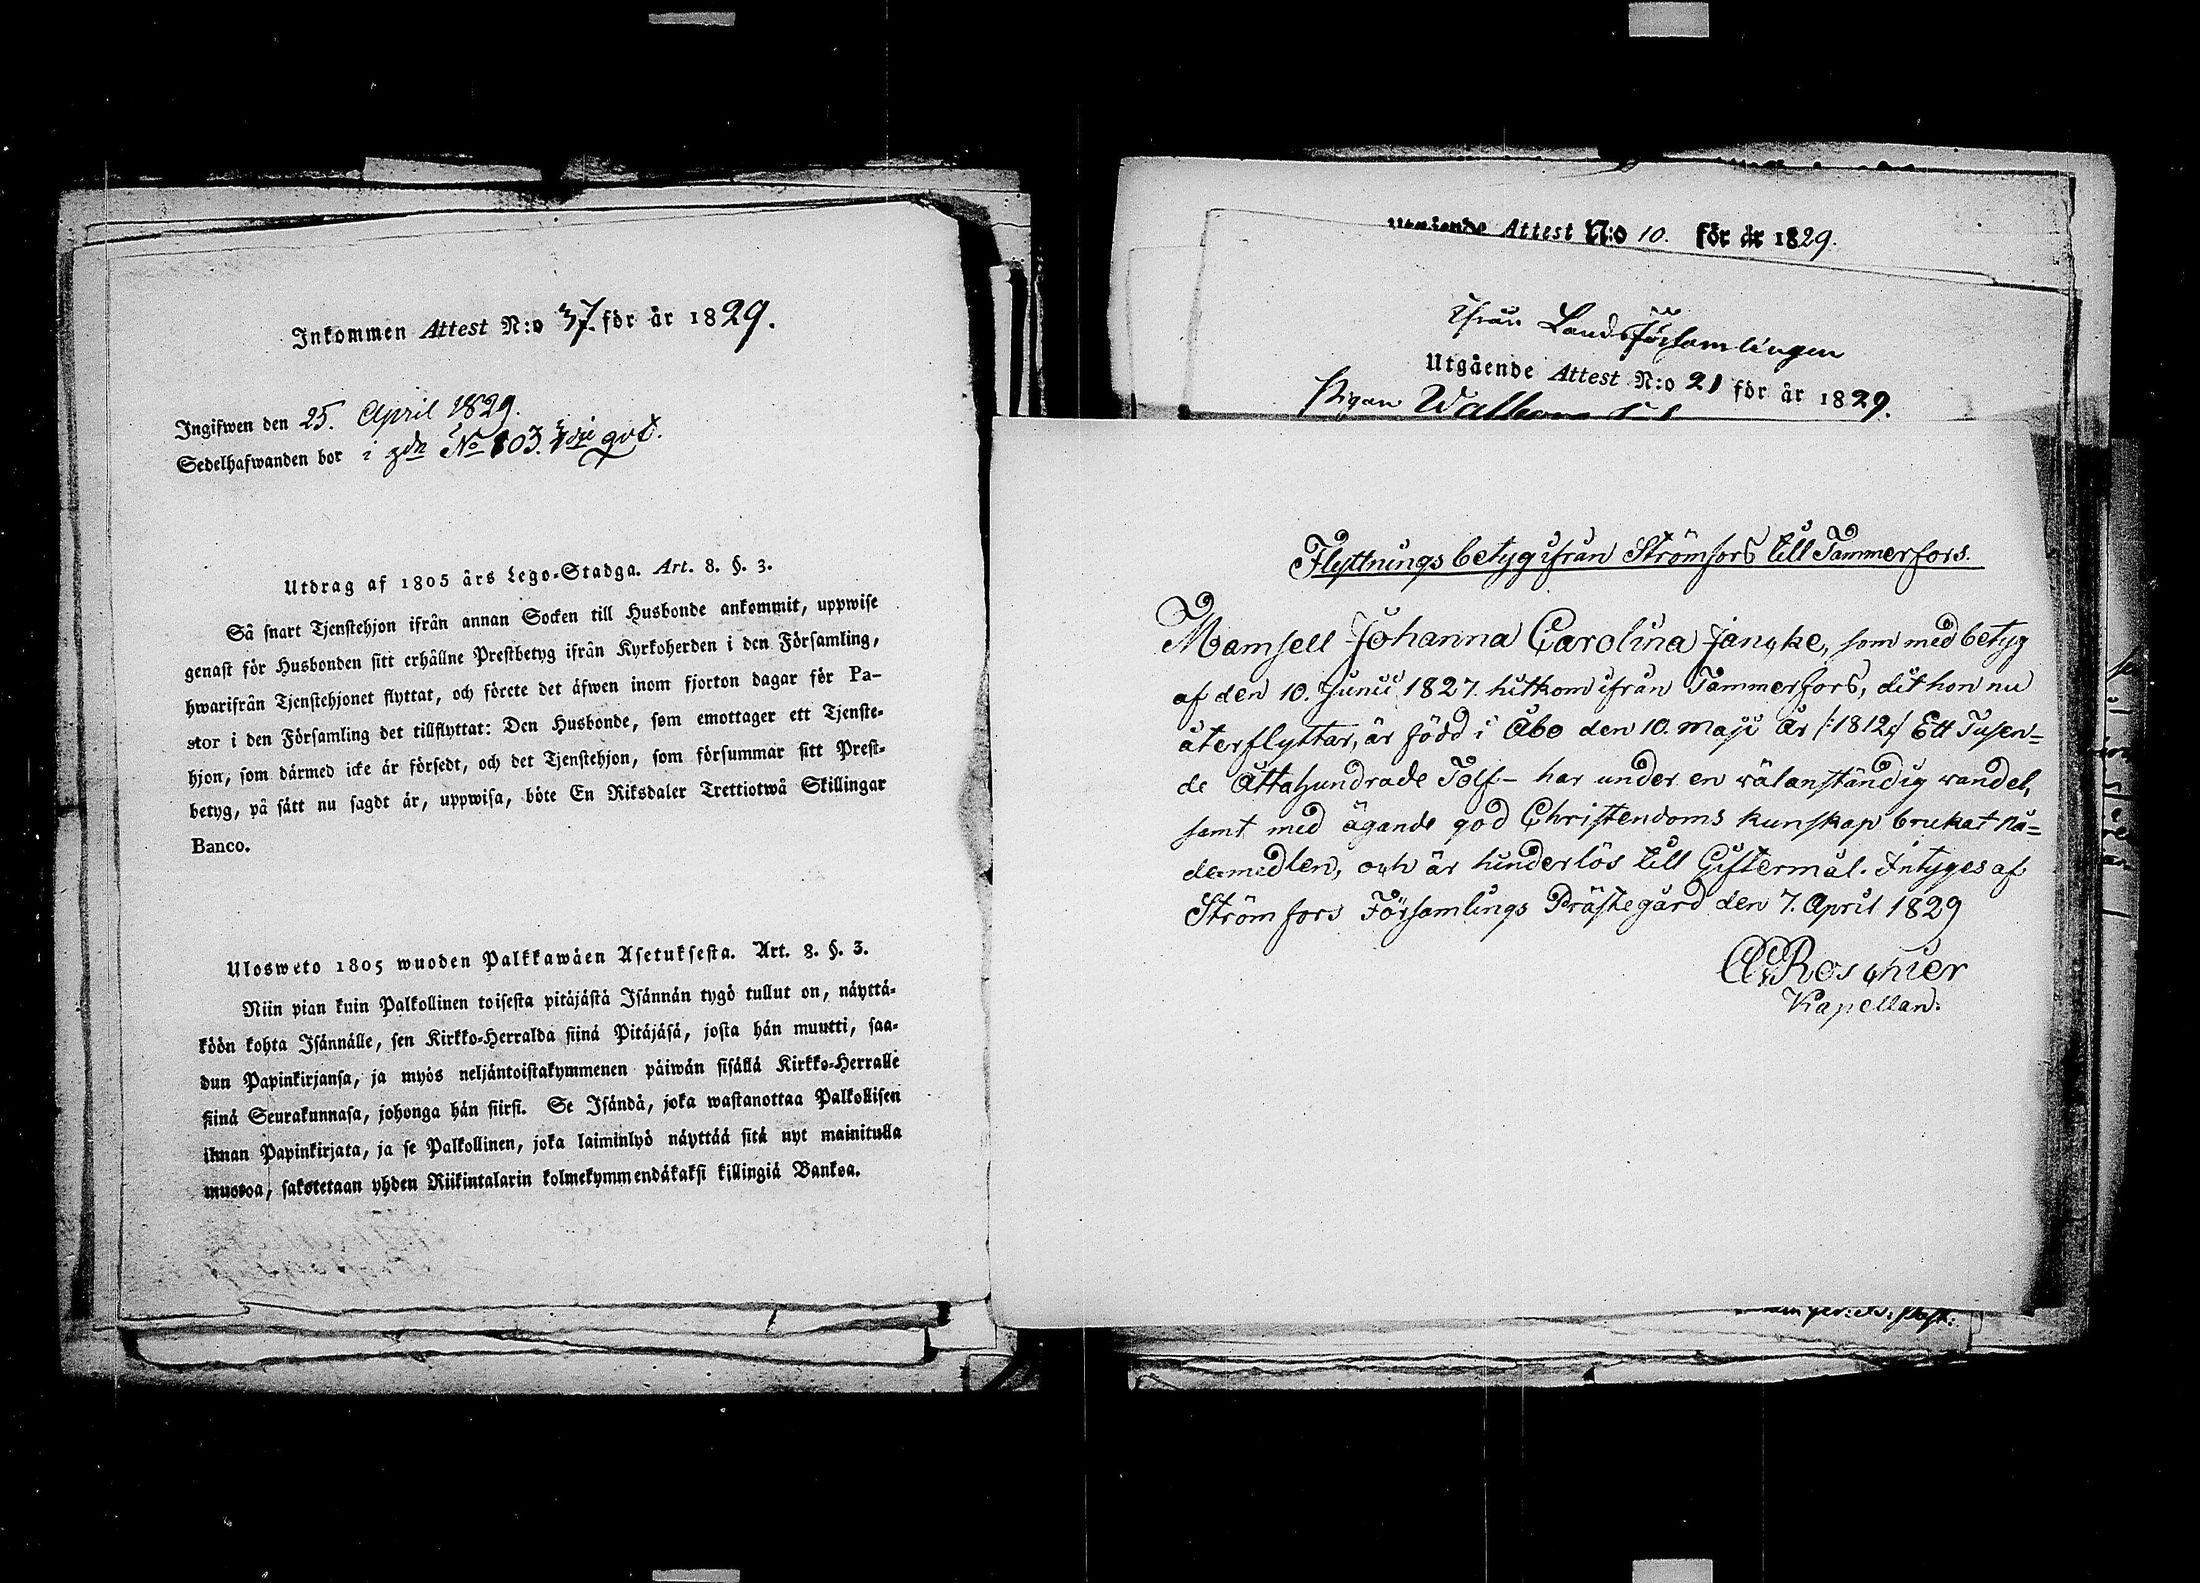 Inkommen Attest N:o 37. för år 1829.
Ingifwen den 25. April 1829.
Sedelhafwanden bor i gdn No 103. qvt.
Utdrag af 1805 års Lego-Stadga. Art. 8. §. 3.
Så snart Tjenstehjon ifrån annan Socken till Husbonde ankommit, uppwise
genast för Husbonden sitt erhållne Prestbetyg ifrån Kyrkoherden i den Församling,
hwarifrån Tjenstehjonet flyttat, och förete det äfwen inom fjorton dagar för Pa-
stor i den Församling det tillflyttat: Den Husbonde, som emottager ett Tjenste-
hjon, som därmed icke är försedt, och det Tjenstehjon, som försummar sitt Prest-
betyg, på sätt nu sagdt är, uppwisa, böte En Riksdaler Trettiotwå Skillingar
Banco.
Ulosweto 1805 wuoden Palkkawäen Asetuksesta. Art. 8. §. 3.
Niin pian kuin Palkollinen toisesta pitäjästä Isännän tygö tullut on, näyttä-
köön kohta Isännälle, sen Kirkko-Herralda siinä Pitäjäsä, josta hän muutti, saa-
dun Papinkirjansa, ja myös neljäntoistakymmenen päiwän sisällä Kirkko-Herralle
siinä Seurakunnasa, johonga hän siirsi. Se Isändä, joka wastanottaa Palkollisen
ilman Papinkirjata, ja se Palkollinen, joka laiminlyö näyttää sitä nyt mainitulla
muotoa, sakotetaan yhden Riikintalarin kolmekymmendäkaksi killingiä Bankoa.
Utgående Attest N:o 10. för år 1829.
Ifrån Landsförsamlingen
Utgående Attest N:o 21 för år 1829.
Pigan
Flyttnings betyg ifrån Strömfors till Tammerfors.
Mamsell Johanna Carolina Jancke, som med betyg
af den 10. Junii 1827. hitkom ifrån Tammerfors, dit hon nu
återflyttar, är född i Åbo den 10. Maji år /:1812:/ Ett Tusen=
de Åttahundrade Tolf- har under en wälanständig wandel,
samt med ägande god Christendoms kunskap brukat Nå=
demedlen, och är hinderlös till Giftermål. Intyges af
Strömfors Församlings Prästegård den 7. April 1829
A Roschier
Kapellan.